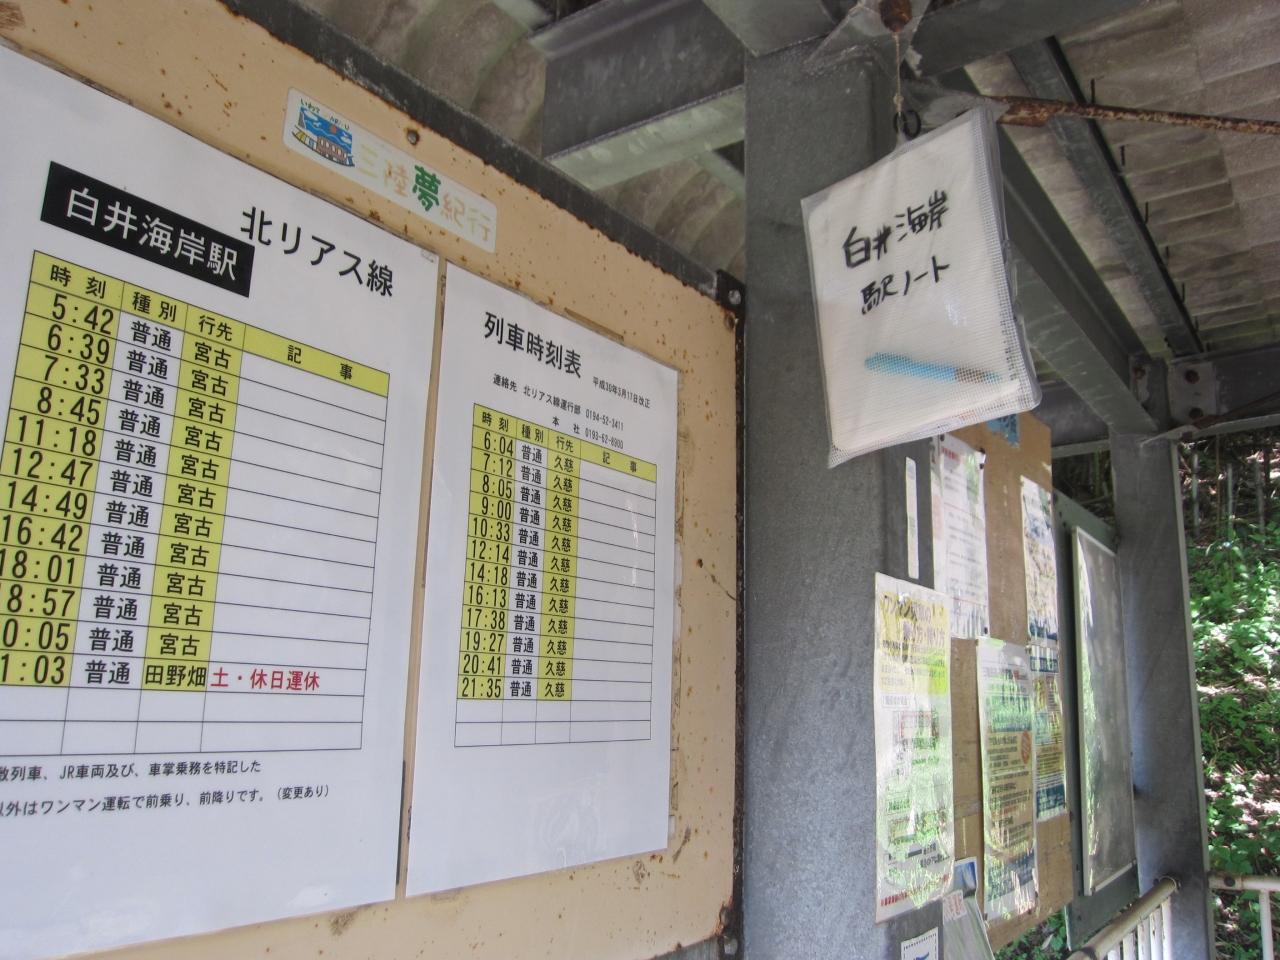 三陸夢紀行
白井海岸駅 北リアス線
時刻 種別 行先 記事
5:42 普通 宮古
6:39 普通 宮古
7:33 普通 宮古
8:45 普通 宮古
11:18 普通 宮古
12:47 普通 宮古
14:49 普通 宮古
16:42 普通 宮古
18:01 普通 宮古
8:57 普通 宮古
0:05 普通 宮古
1:03 普通 田野畑 土・休日運休
列車、JR車両及び、車掌乗務を特記した
以外はワンマン運転で前乗り、前降りです。(変更あり)
列車時刻表
平成30年3月17日改正
連絡先 北リアス線運行部 0194-52-3411
本社 0193-62-8900
時刻 種別 行先 記事
6:04 普通 久慈
7:12 普通 久慈
8:05 普通 久慈
9:00 普通 久慈
10:33 普通 久慈
12:14 普通 久慈
14:18 普通 久慈
16:13 普通 久慈
17:38 普通 久慈
19:27 普通 久慈
20:41 普通 久慈
21:35 普通 久慈
白井海岸
駅ノート